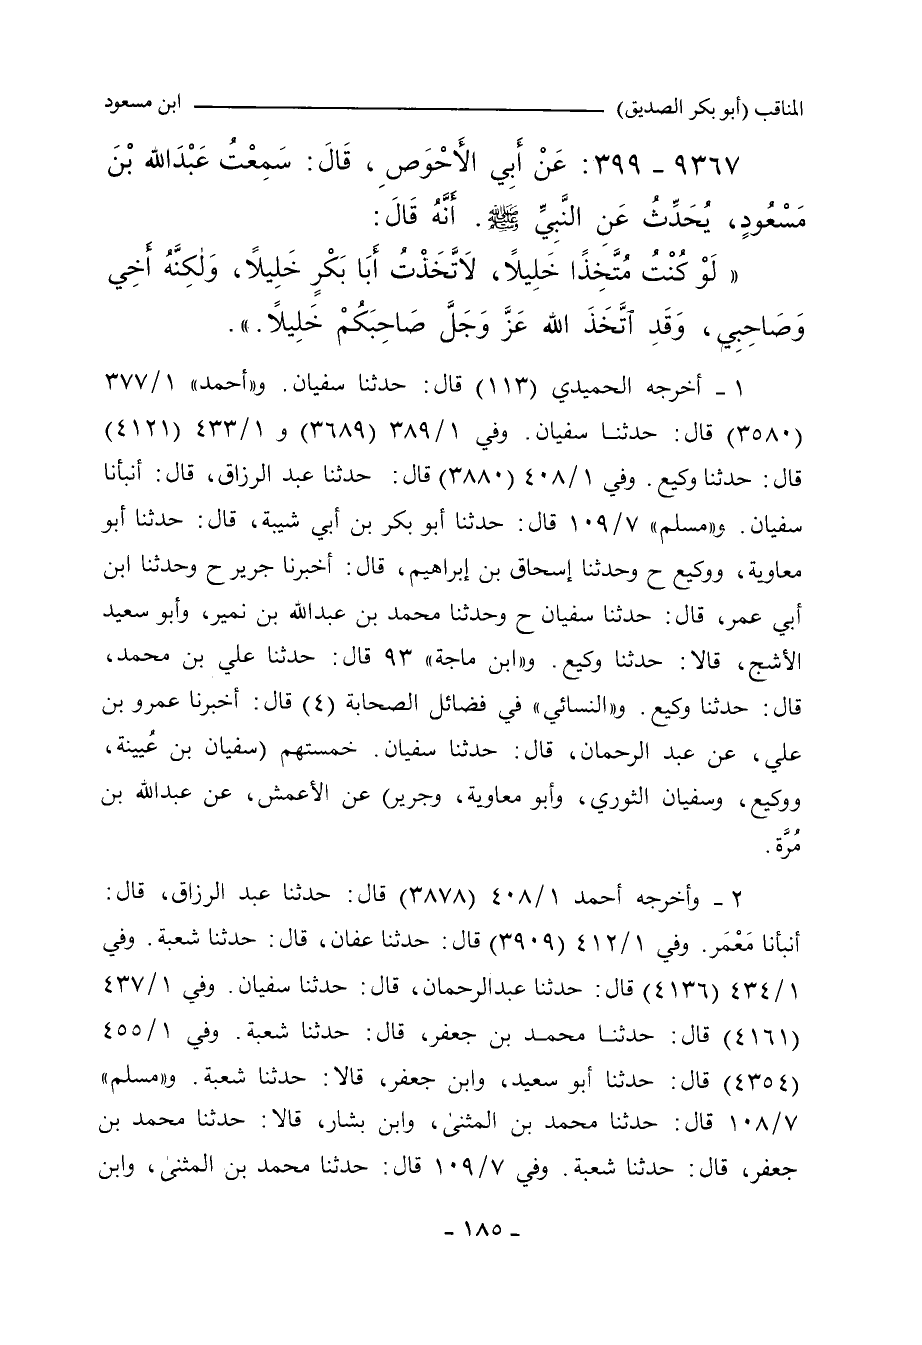 المناقب (أبو بكر الصديق) ــــــــــــ ابن مسعود
٩٣٦٧ ـ ٣٩٩: عَنْ أَبِي الأَحْوَصِ، قَالَ: سَمِعْتُ عَبْدَالله بْنَ
مَسْعُودٍ، يُحَدِّثُ عَنِ النَّبِيِّ ﷺ. أَنَّهُ قَالَ:
« لَوْ كُنْتُ مُتَّخِذًا خَلِيلًا، لَاتَّخَذْتُ أَبَا بَكْرٍ خَلِيلًا، وَلٰكِنَّهُ أَخِي
وَصَاحِبِي، وَقَدِ ٱتَّخَذَ الله عَزَّ وَجَلَّ صَاحِبَكُمْ خَلِيلًا.».
١ ـ أخرجه الحميدي (١١٣) قال: حدثنا سفيان. و«أحمد» ٣٧٧/١
(٣٥٨٠) قال: حدثنا سفيان. وفي ٣٨٩/١ (٣٦٨٩) و ٤٣٣/١ (٤١٢١)
قال: حدثنا وكيع. وفي ٤٠٨/١ (٣٨٨٠) قال: حدثنا عبد الرزاق، قال: أنبأنا
سفيان. و«مسلم» ١٠٩/٧ قال: حدثنا أبو بكر بن أبي شيبة، قال: حدثنا أبو
معاوية، ووكيع ح وحدثنا إسحاق بن إبراهيم، قال: أخبرنا جرير ح وحدثنا ابن
أبي عمر، قال: حدثنا سفيان ح وحدثنا محمد بن عبدالله بن نمير، وأبو سعيد
الأشج، قالا: حدثنا وكيع. و«ابن ماجة» ٩٣ قال: حدثنا علي بن محمد،
قال: حدثنا وكيع. و«النسائي» في فضائل الصحابة (٤) قال: أخبرنا عمرو بن
علي، عن عبد الرحمان، قال: حدثنا سفيان. خمستهم (سفيان بن عُيينة،
ووكيع، وسفيان الثوري، وأبو معاوية، وجرير) عن الأعمش، عن عبدالله بن
مُرَّة.
٢ ـ وأخرجه أحمد ٤٠٨/١ (٣٨٧٨) قال: حدثنا عبد الرزاق، قال:
أنبأنا مَعْمَر. وفي ٤١٢/١ (٣٩٠٩) قال: حدثنا عفان، قال: حدثنا شعبة. وفي
٤٣٤/١ (٤١٣٦) قال: حدثنا عبدالرحمان، قال: حدثنا سفيان. وفي ٤٣٧/١
(٤١٦١) قال: حدثنا محمد بن جعفر، قال: حدثنا شعبة. وفي ٤٥٥/١
(٤٣٥٤) قال: حدثنا أبو سعيد، وابن جعفر، قالا: حدثنا شعبة. و«مسلم»
١٠٨/٧ قال: حدثنا محمد بن المثنىٰ، وابن بشار، قالا: حدثنا محمد بن
جعفر، قال: حدثنا شعبة. وفي ١٠٩/٧ قال: حدثنا محمد بن المثنىٰ، وابن
ـ ١٨٥ ـ